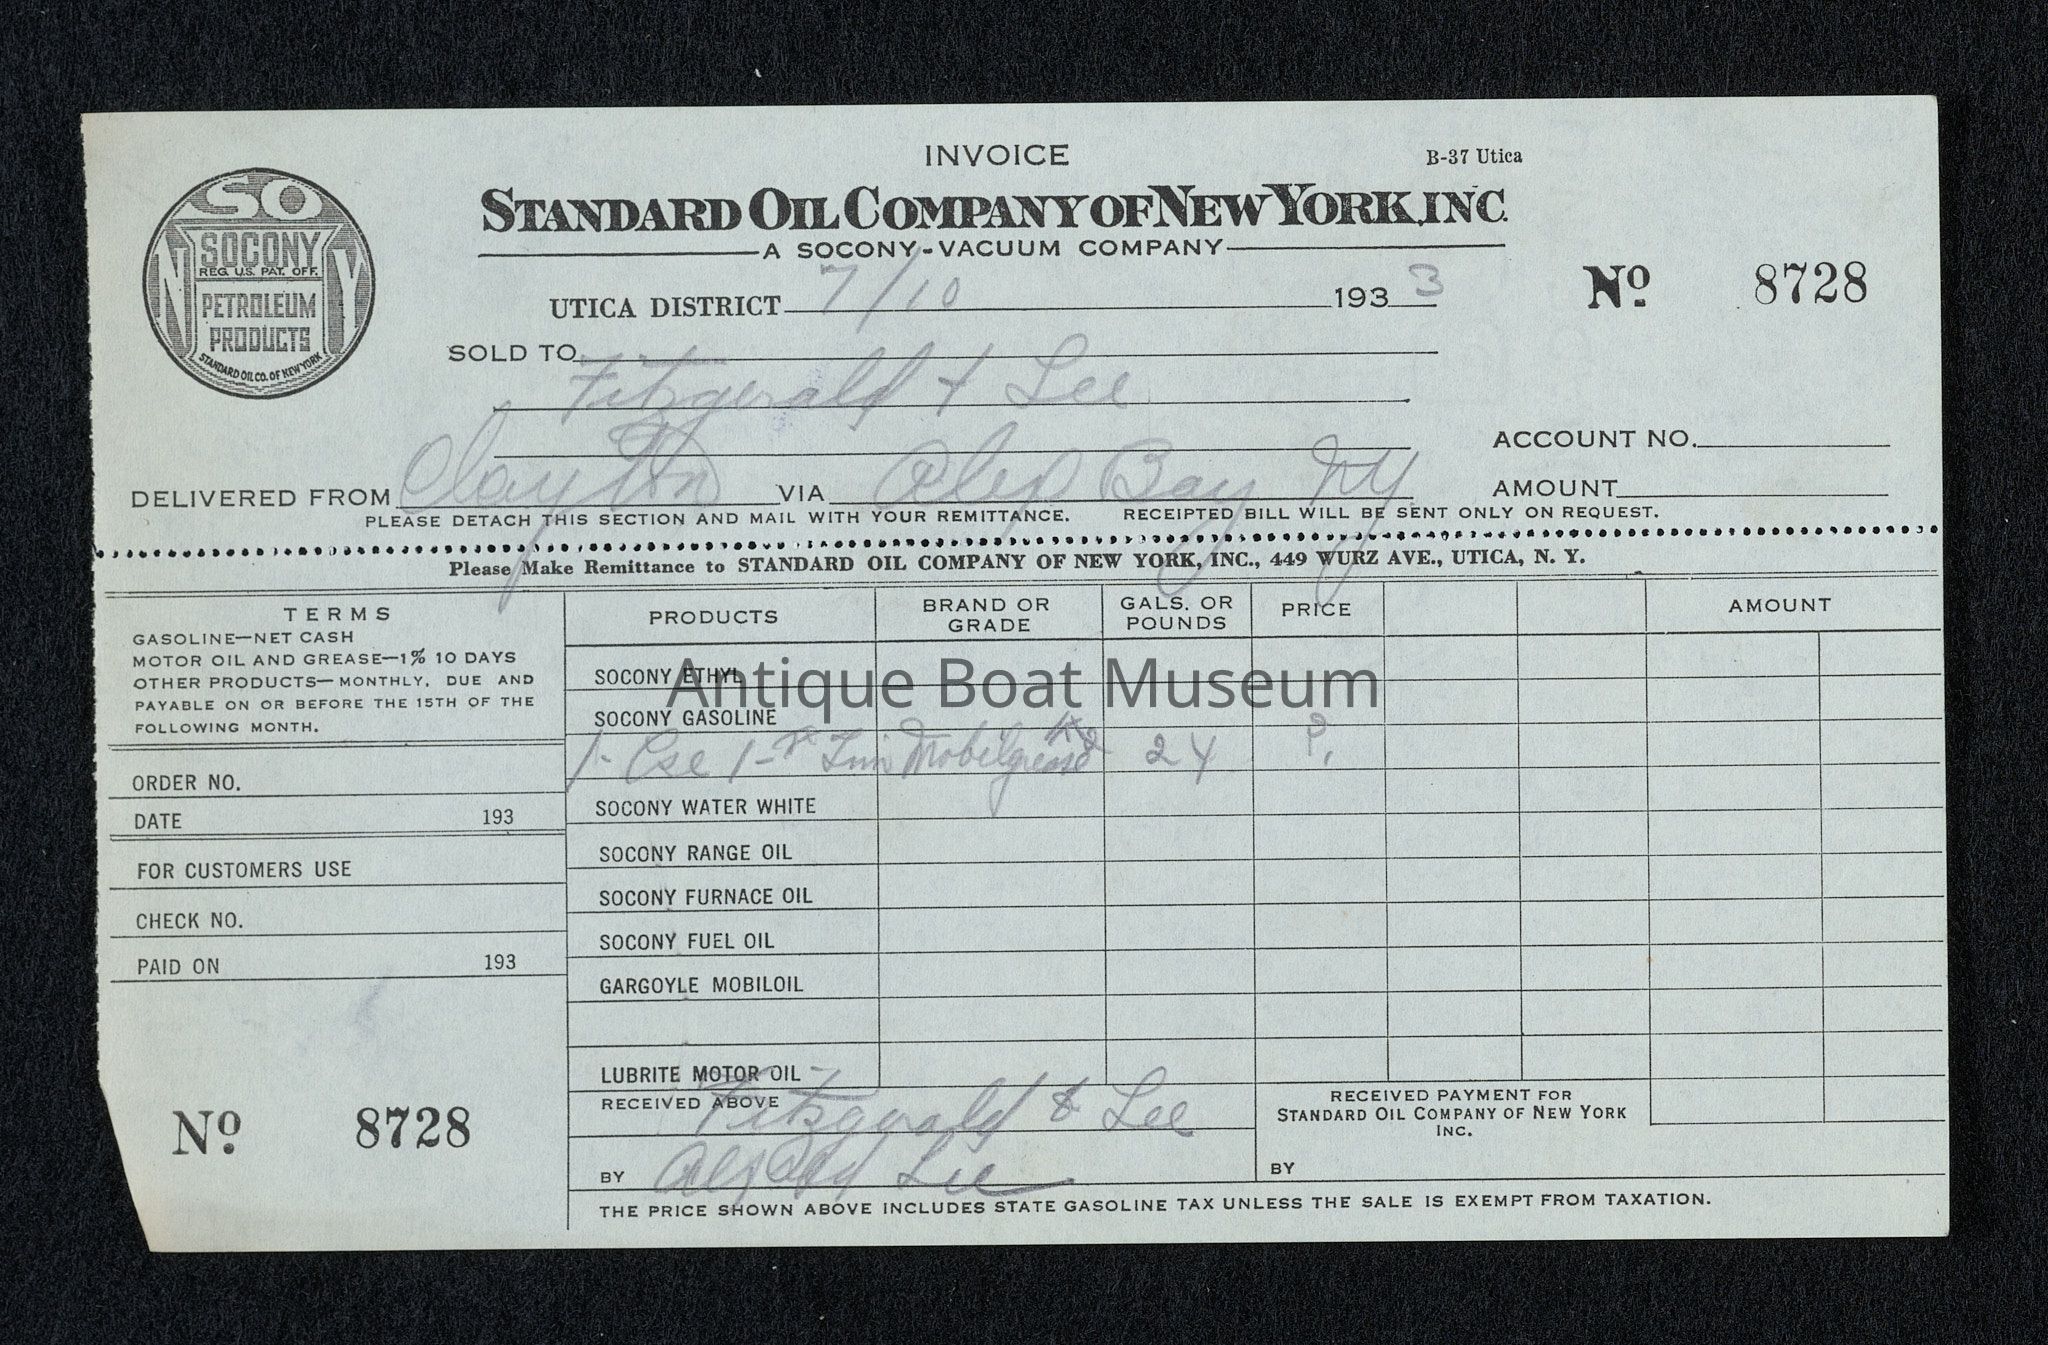 INVOICE
B-37 Utica
STANDARD OIL COMPANY OF NEW YORK, INC.
A SOCONY-VACUUM COMPANY
SO
N Y
SOCONY
REG. U.S. PAT. OFF.
PETROLEUM
PRODUCTS
STANDARD OIL CO. OF NEW YORK
UTICA DISTRICT 7/10 193 3
No 8728
SOLD TO
Fitzgerald + Lee
ACCOUNT NO.
DELIVERED FROM Clayton VIA Alex Bay NY
AMOUNT
PLEASE DETACH THIS SECTION AND MAIL WITH YOUR REMITTANCE. RECEIPTED BILL WILL BE SENT ONLY ON REQUEST.
Please Make Remittance to STANDARD OIL COMPANY OF NEW YORK, INC., 449 WURZ AVE., UTICA, N. Y.
TERMS
GASOLINE—NET CASH
MOTOR OIL AND GREASE—1% 10 DAYS
OTHER PRODUCTS—MONTHLY, DUE AND
PAYABLE ON OR BEFORE THE 15TH OF THE
FOLLOWING MONTH.
ORDER NO.
DATE 193
FOR CUSTOMERS USE
CHECK NO.
PAID ON 193
No 8728
PRODUCTS BRAND OR GRADE GALS. OR POUNDS PRICE AMOUNT
SOCONY ETHYL
Antique Boat Museum
SOCONY GASOLINE
1- Cse 1- Tin Mobilgrease #2 24 P.
SOCONY WATER WHITE
SOCONY RANGE OIL
SOCONY FURNACE OIL
SOCONY FUEL OIL
GARGOYLE MOBILOIL
LUBRITE MOTOR OIL
RECEIVED ABOVE Fitzgerald & Lee
BY Lee
RECEIVED PAYMENT FOR
STANDARD OIL COMPANY OF NEW YORK
INC.
BY
THE PRICE SHOWN ABOVE INCLUDES STATE GASOLINE TAX UNLESS THE SALE IS EXEMPT FROM TAXATION.